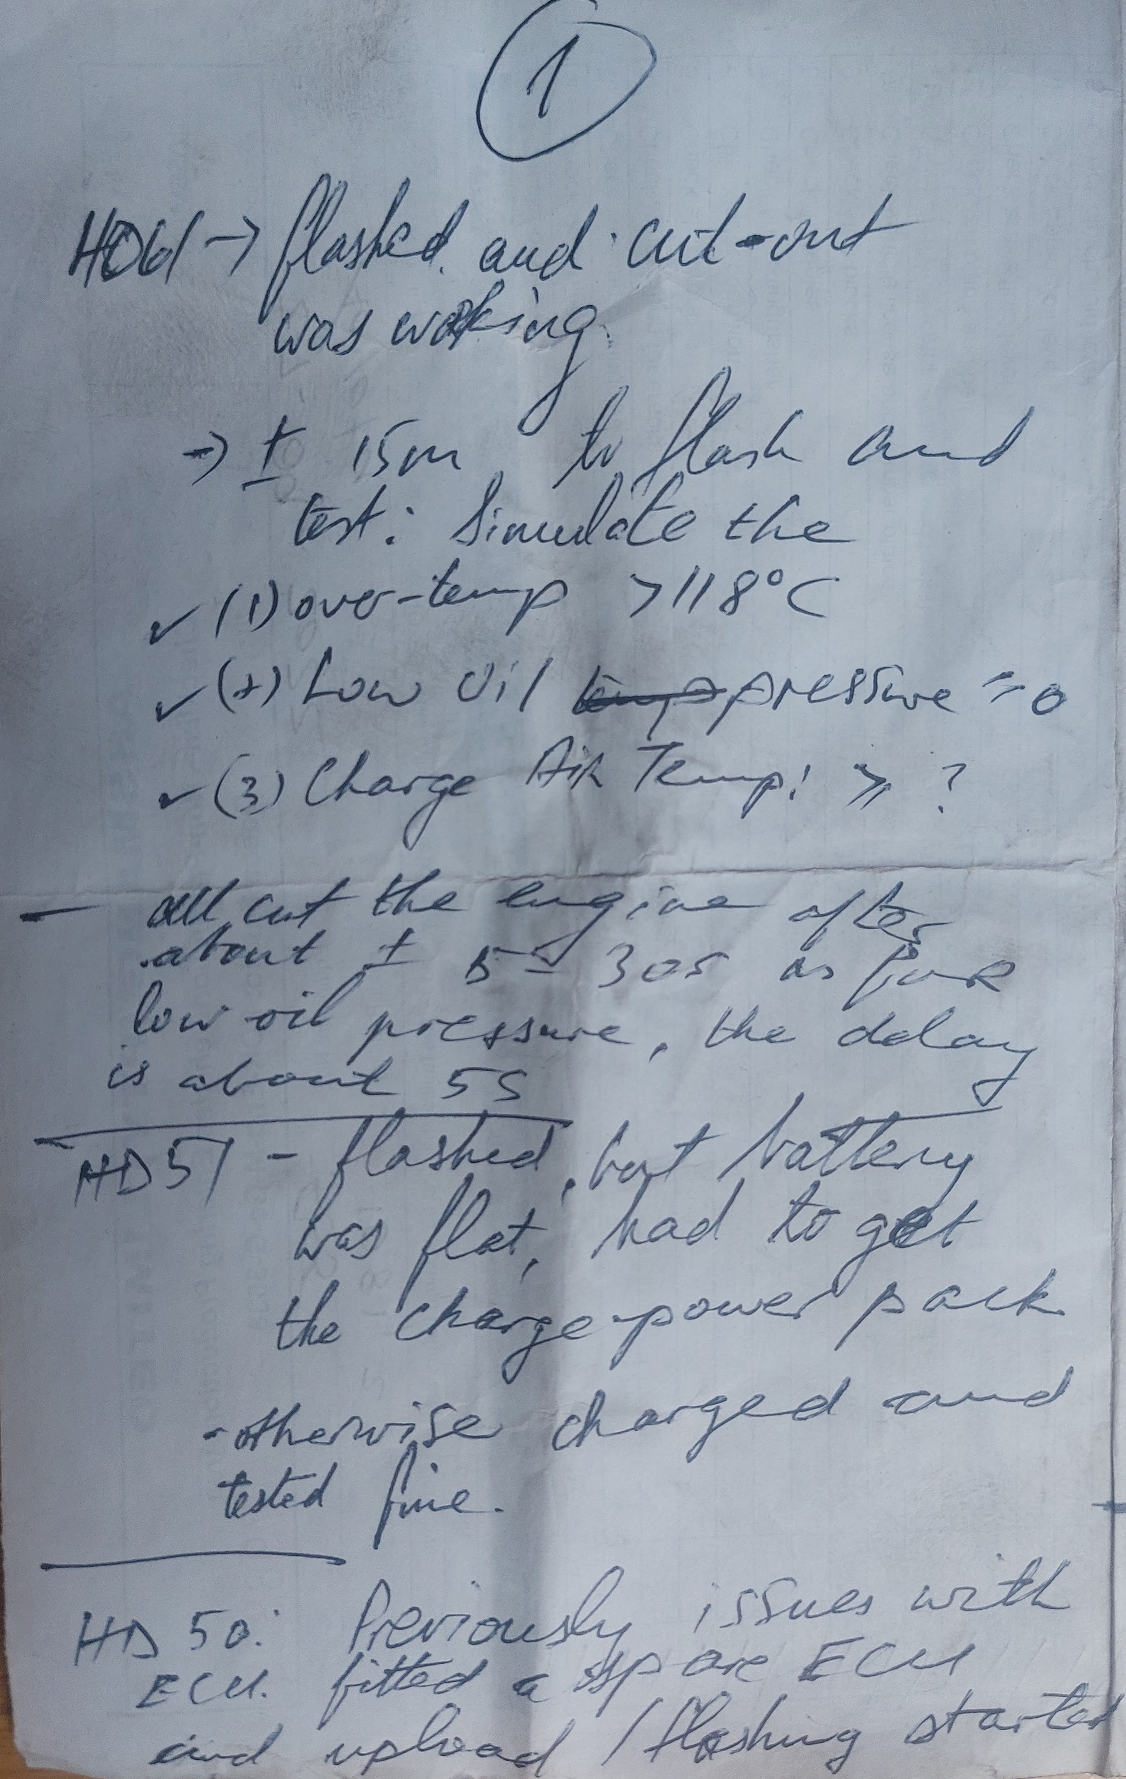 1
HD61 → flashed and cut-out
was working.
→ ± 15m to flash and
test: Simulate the
✓ (1) over-temp >118°C
✓ (2) Low Oil temp pressure = 0
✓ (3) Charge Air Temp: ≥ ?
- all cut the engine after
about ± 5 - 30s as for
low oil pressure, the delay
is about 5s
HD51 - flashed, but battery
was flat, had to get
the charge power pack
- otherwise charged and
tested fine.
HD 50: Previously issues with
ECU. fitted a spare ECU
and upload / flashing started